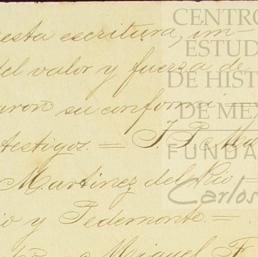 esta escritura, im-
del valor y fuerza de
aron su conformi
testigos. = J. B.
Martinez del Rio =
io y Pedemonte =
Miguel F.
CENTRO
ESTUD
DE HISTO
DE MEX
FUNDA
Carlos